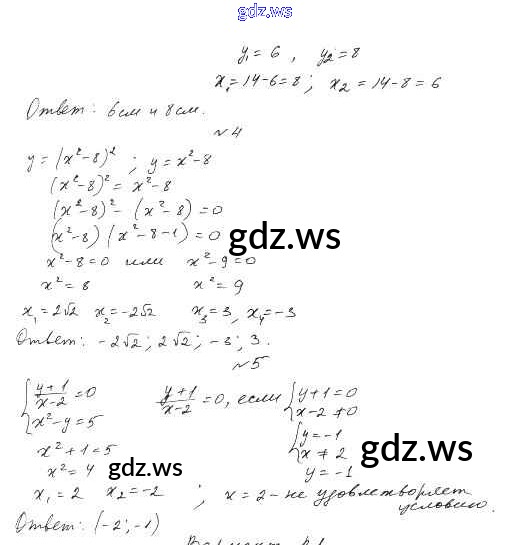 gdz.ws
y₁ = 6, y₂ = 8
x₁ = 14-6 = 8; x₂ = 14-8 = 6
Ответ: 6 см и 8 см.
№4
y = (x²-8)²; y = x²-8
(x²-8)² = x²-8
(x²-8)² - (x²-8) = 0
(x²-8)(x²-8-1) = 0
gdz.ws
x²-8=0 или x²-9=0
x² = 8 x² = 9
x₁ = 2√2 x₂ = -2√2 x₃ = 3, x₄ = -3
Ответ: -2√2; 2√2; -3; 3.
№5
{ (y+1)/(x-2) = 0 (y+1)/(x-2) = 0, если { y+1=0
x²-y=5 x-2≠0
{ y=-1
x²+1=5 x≠2
gdz.ws
x²=4 y=-1
gdz.ws
x₁ = 2 x₂ = -2 ; x = 2 - не удовлетворяет
условию.
Ответ: (-2; -1)